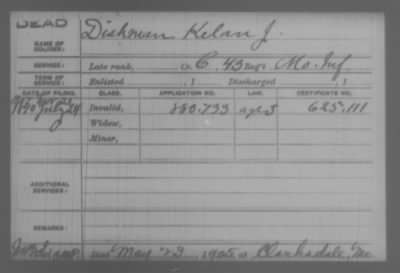 DEAD
NAME OF SOLDIER: Dishman Kelan J.
SERVICE: Late rank, Co. C, 43 Reg't Mo. Inf
TERM OF SERVICE: Enlisted , 1 Discharged , 1
DATE OF FILING. CLASS. APPLICATION NO. LAW. CERTIFICATE NO.
1890 July 24 Invalid, 880.733 625.111
Widow,
Minor,
ADDITIONAL SERVICES:
REMARKS:
Died May 23, 1905, at Clarksdale, Mo.